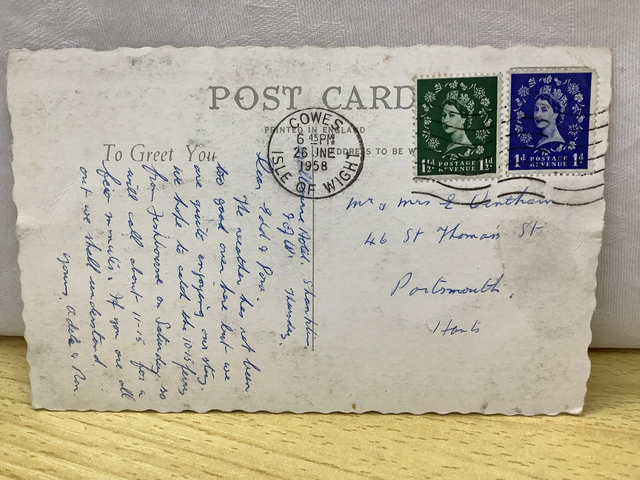 POST CARD
PRINTED IN ENGLAND
ADDRESS TO BE W
To Greet You
COWES
6 45PM
26 JNE
1958
ISLE OF WIGHT
1½d POSTAGE 1½d
REVENUE
1d POSTAGE 1d
REVENUE
Hotel Shanklin
I of W.
Thursday
Dear &
The weather has not been
too good over here but we
are quite enjoying our stay.
we hope to catch the 10.15 ferry
from Fishbourne on Saturday so
will call about 11-15 for a
few minutes. If you are all
out we shall understand.
yours,
Mr & Mrs E
46 St Thomas's St
Portsmouth.
Hants